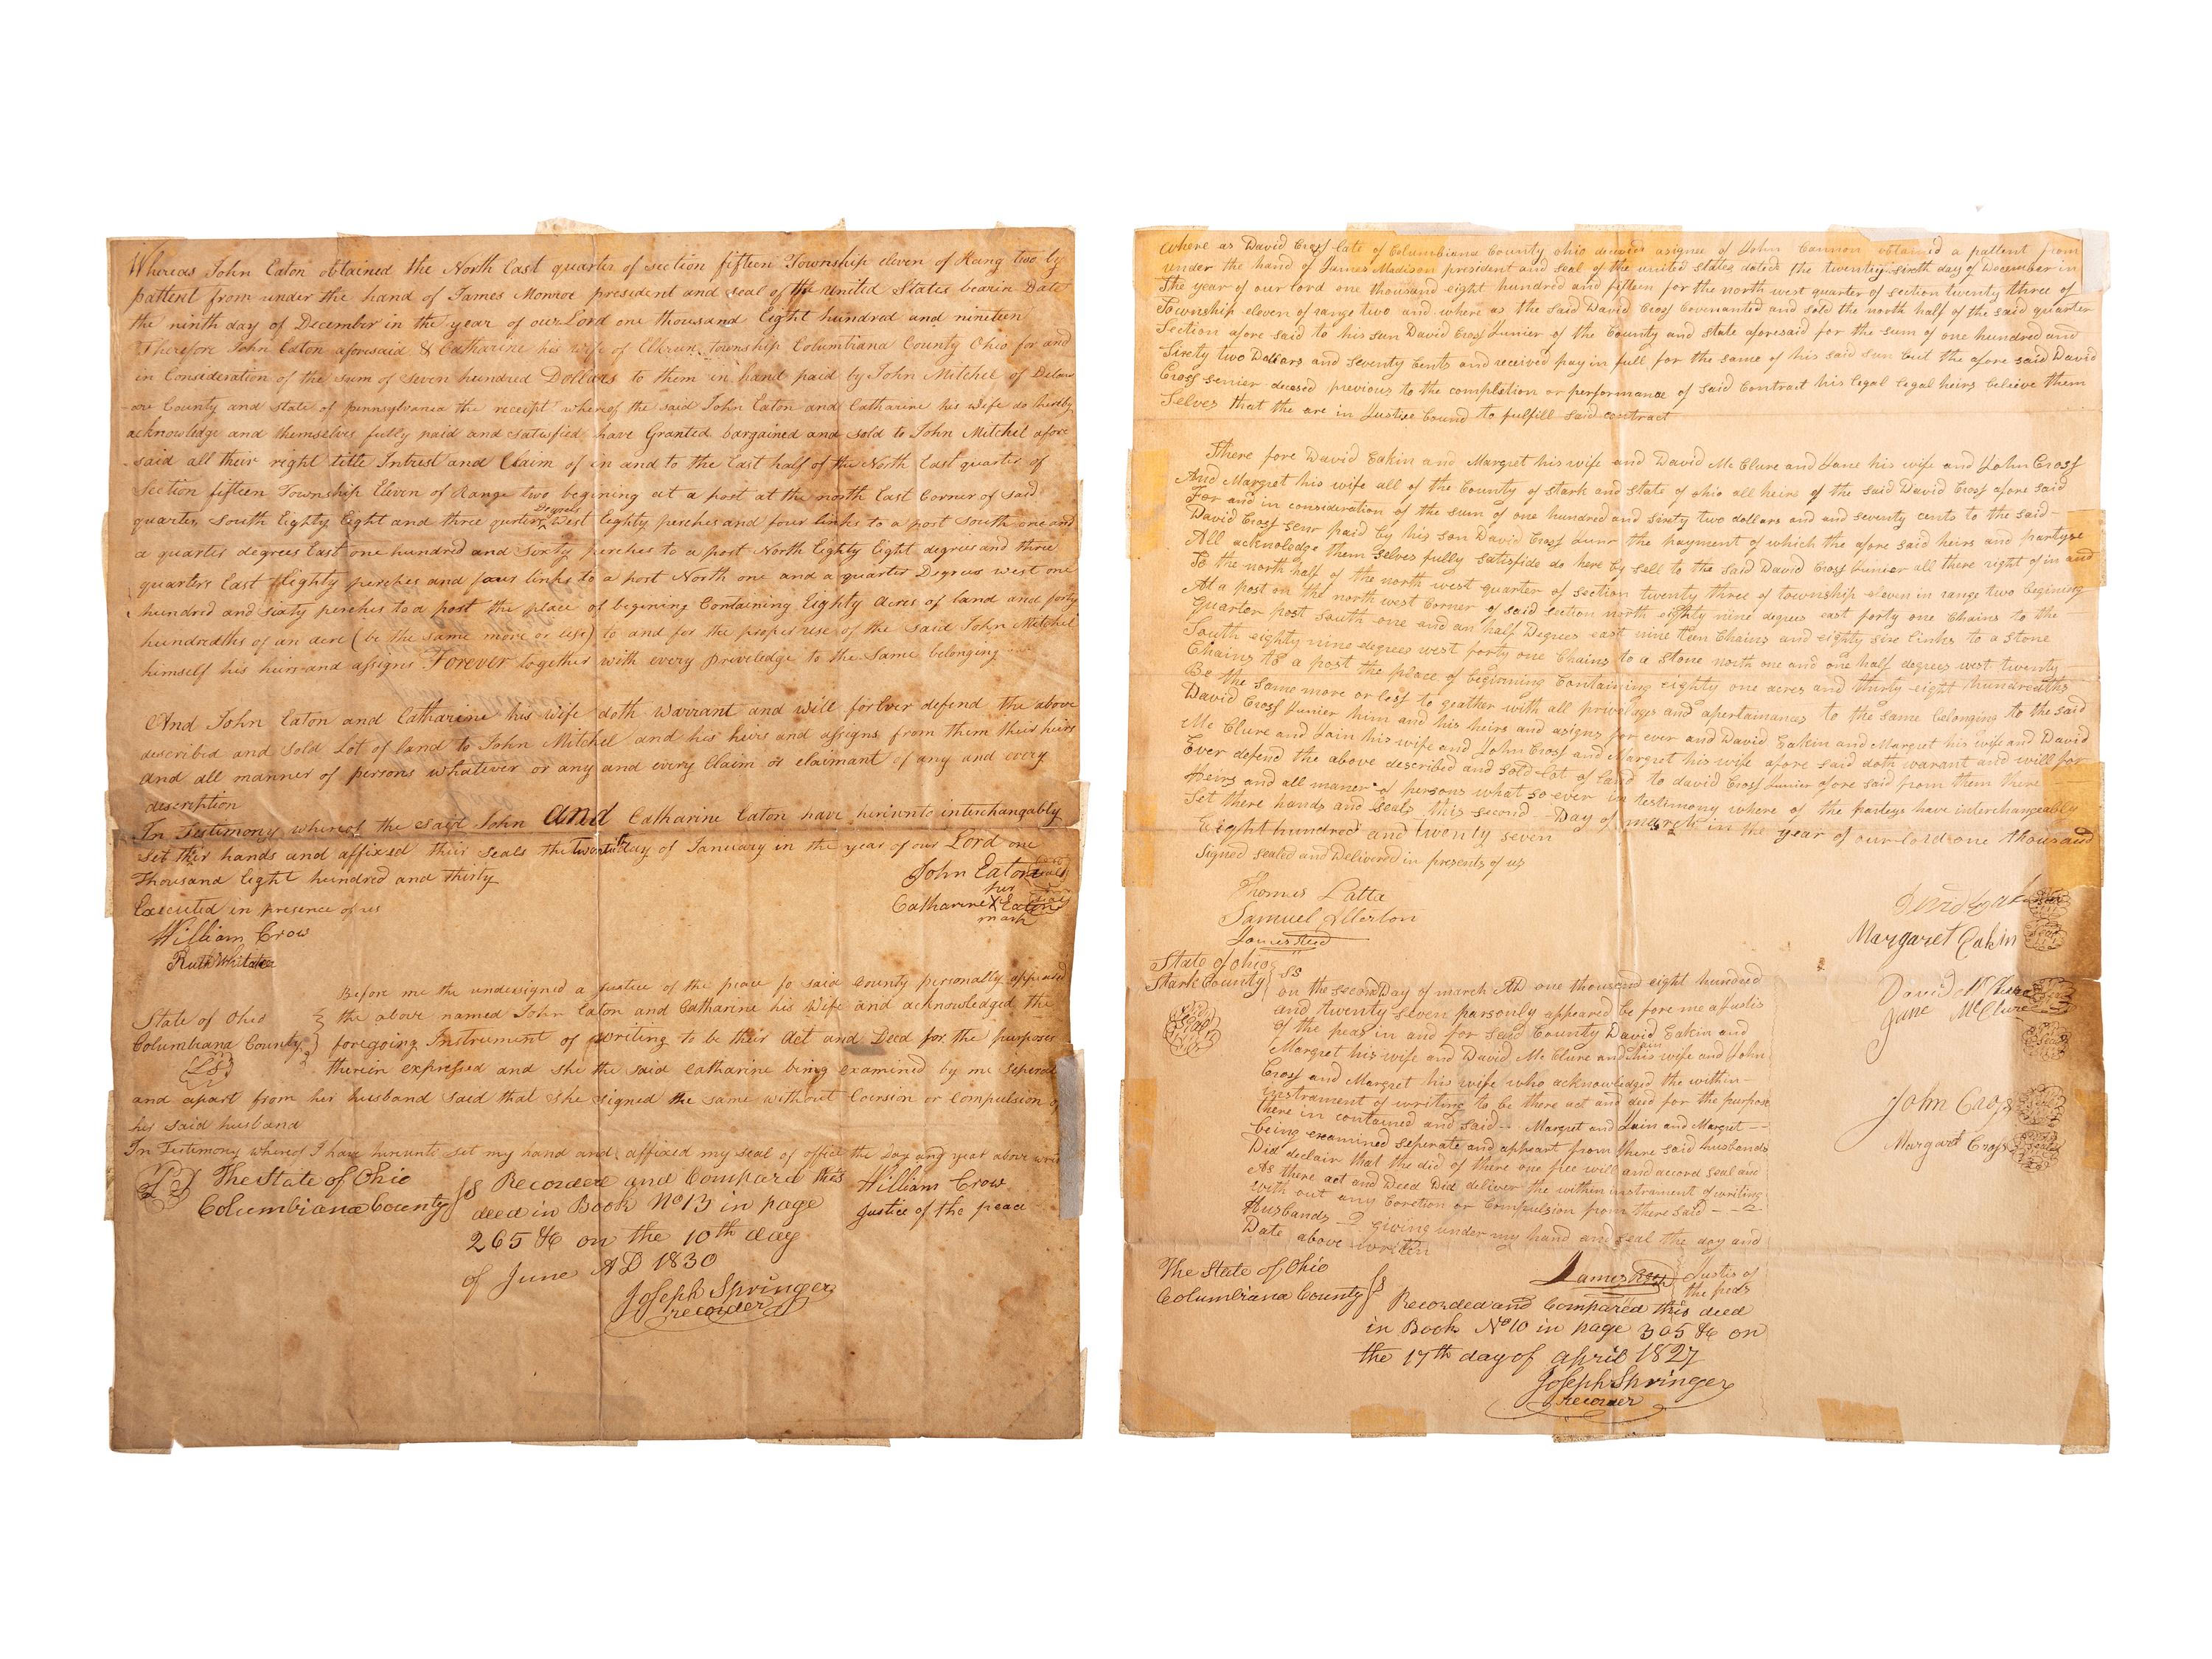 Whereas John Eaton obtained the North East quarter of section fifteen Township eleven of Rang two by
pattent from under the hand of James Monroe president and seal of the united States bearin Date
the ninth day of December in the year of our Lord one thousand Eight hundred and nineteen
Therefore John Eaton aforesaid & Catharine his wife of township Columbiana County Ohio for and
in Consideration of the sum of seven hundred Dollars to them in hand paid by John Mitchel of Delaw
-are County and state of pennsylvania the receipt whereof the said John Eaton and Catharine his Wife do hereby
acknowledge and themselves fully paid and satisfied have Granted bargained and sold to John Mitchel afore
-said all their right title Intrest and Claim of in and to the East half of the North East quarter of
Section fifteen Township Eleven of Range two begining at a post at the north East Corner of said
quarter South Eighty Eight and three qurters Degrees West Eighty perches and four links to a post South one and
a quarter degrees East one hundred and sixty perches to a post North Eighty Eight degrees and three
quarters East Eighty perches and four links to a post North one and a quarter Degrees west one
hundred and sixty perches to a post the place of begining Containing Eighty acres of land and forty
hundredths of an acre (be the same more or less) to and for the proper use of the said John Mitchel
himself his heirs and assigns Forever together with every priveledge to the same belonging
And John Eaton and Catharine his wife doth warrant and will forEver defend the above
described and sold Lot of land to John Mitchel and his heirs and assigns from them their heirs
and all manner of persons whatever or any and every Claim or claimant of any and every
description
In Testimony whereof the said John and Catharine Eaton have hereunto interchangably
set their hands and affixed their seals the day of January in the year of our Lord one
Thousand Eight hundred and thirty
John Eaton seal
Executed in presence of us
her
Catharine X Eaton seal
mark
William Crow
Ruth Whitaker
Before me the undersigned a justice of the peace fo said county personally appeared
State of Ohio the above named John Eaton and Catharine his Wife and acknowledged the
Columbiana County foregoing Instrument of writing to be their Act and Deed for the purposes
therein expressed and she the said Catharine being examined by me seperate
and apart from her husband said that she signed the same without Coersion or Compulsion of
her said husband
In Testimony whereof I have hereunto set my hand and affixed my seal of office the day and year above
The State of Ohio
Columbiana County ss
Recorded and Compared this
deed in Book No 13 in page
265 &c on the 10th day
of June AD 1830
Joseph Springer
recorder
William Crow
Justice of the peace
where as David Cross late of Columbiana County ohio asignee of John Cannon obtained a pattent from
under the hand of James Madison president and seal of the united states dated the twenty sixth day of December in
the year of our lord one thousand eight hundred and fifteen for the north west quarter of section twenty three of
Township eleven of range two and where as the said David Cross Covenanted and sold the north half of the said quarter
Section afore said to his sun David Cross Junier of the County and state aforesaid for the sum of one hundred and
Sixty two Dollars and seventy Cents and received pay in full for the same of his said sun but the afore said David
Cross senier decesed previous to the completion or performance of said Contract his legal legal heirs beleive them
Selves that the are in Justice bound to fulfill said contract
There fore David Eakin and Margret his wife and David Mc Clure and Jane his wife and John Cross
And Margret his wife all of the County of stark and state of ohio all heirs of the said David Cross afore said
For and in consideration of the sum of one hundred and sixty two dollars and and seventy cents to the said
David Cross senr paid by his son David Cross Junr the payment of which the afore said heirs and
All acknoledge them selves fully satisfide do here by sell to the said David Cross Junier all there right of in and
To the north half of the north west quarter of section twenty three of township eleven in range two begining
At a post on the north west Corner of said section north eighty nine degrees east forty one Chains to the
Quarter post south one and an half Degrees east nine teen Chains and eighty six links to a stone
South eighty nine degrees west forty one Chains to a stone north one and one half degrees west twenty
Chains to a post the place of begining Containing eighty one acres and thirty eight hundredths
Be the same more or less to geather with all privelages and apertainances to the same belonging to the said
David Cross Junier him and his heirs and asigns for ever and David Eakin and Margret his wife and David
Mc Clure and Jain his wife and John Cross and Margret his wife afore said doth warant and will for
Ever defend the above described and sold Lot of land to david Cross Junier afore said from them there
Heirs and all maner of persons what so ever in testimony where of the have interchangeably
Set there hands and seals this second Day of march in the year of our lord one thousand
Eight hundred and twenty seven
Signed sealed and Delivered in presents of us
Thomas Latta
Samuel Ellerton
James Reed
seal
Margaret Eakin seal
David McClure seal
Jane McClure seal
John Cross seal
Margaret Cross seal
State of ohio
Stark County ss
seal
on the second Day of march AD one thousend eight hundred
and twenty seven parsonly appeared be fore me a Justis
of the peas in and for said County David Eakin and
Margret his wife and David Mc Clure and Jain his wife and John
Cross and Margret his wife who acknowledged the within
instrament of writing to be there act and deed for the purpose
there in contained and said Margret and Jain and Margret
being examined seperate and appeart from there said husbands
Did declair that the did of there one free will and accord seal and
As there act and Deed Did deliver the within instrament of writing
with out any Coretion or Compulsion from there said
Husbands giving under my hand and seal the day and
Date above written
James Reed Justis of
the peas
The State of Ohio
Columbiana County ss
Recorded and Compared this deed
in Book No 10 in page 305 &c on
the 17th day of april 1827
Joseph Springer
recorder